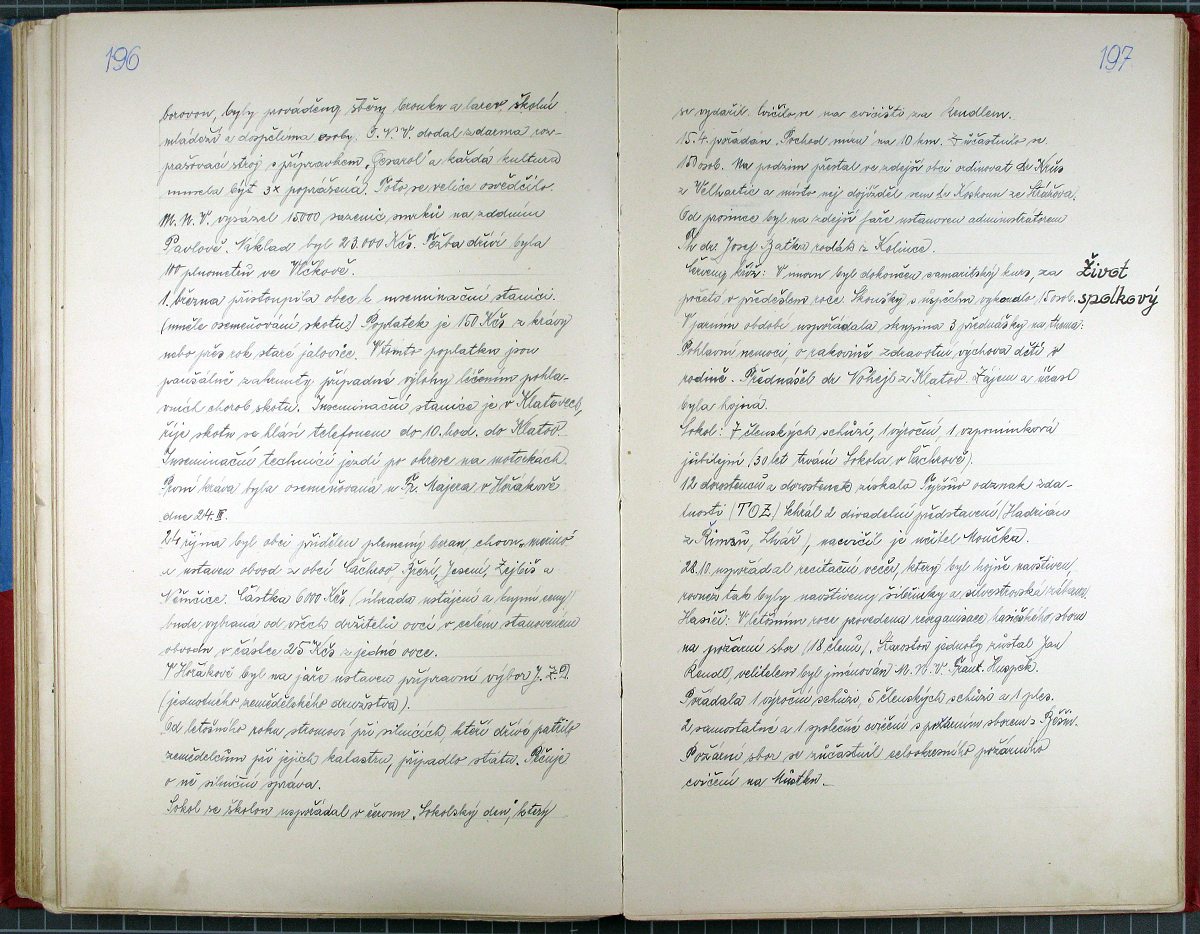 196
borovou, byly prováděny sběry brouků a larev školní
mládeží a dospělými osoby. O.N.V. dodal zdarma roz-
prašovací stroj s přípravkem „Gesarol" a každá kultura
musela být 3x poprášena. Toto se velice osvědčilo.
M.N.V. vysázel 15000 sazenic smrků na zádním
Pavlově. Náklad byl 23.000 Kčs. Těžba dříví byla
100 plnometrů ve Vlčkově.
1. března přistoupila obec k inseminační stanici.
(umělé osemeňování skotu.) Poplatek je 150 Kčs z krávy
nebo přes rok staré jalovice. V tomto poplatku jsou
paušálně zahrnuty případné výlohy léčením pohla-
vních chorob skotu. Inseminační stanice je v Klatovech,
říje skotu se hlásí telefonem do 10. hod. do Klatov.
Inseminační technici jezdí po okrese na motorkách.
První kráva byla osemeňovaná u Fr. Majera v Hořákově
dne 24. III.
24 října byl obci přidělen plemenný beran, chovu „merino"
a ustaven obvod z obcí Čachrov, Březí, Jesení, Žejbiš a
Němčice. Částka 6000 Kčs (úhrada ustájení a kupní ceny)
bude vybrána od všech držitelů ovcí v celém stanoveném
obvodu v částce 25 Kčs z jedné ovce.
V Hořákově byl na jaře ustaven přípravní výbor J.Z.D.
(jednotného zemědělského družstva).
Od letošního roku stromoví při silnicích, kteří dříve patřilo
zemědelcům při jejich katastru, připadlo státu. Pečuje
o ně silniční správa.
Sokol se školou uspořádal v červnu „Sokolský den", který
197
se vydařil. Cvičilo se na cvičišti za Rendlem.
15.4. pořádán „Pochod míru" na 10 km. účastnilo se
150 osob. Na podzim přestal ve zdejší obci ordinovat dr Krůs
z Velhartic a místo něj dojížděl sem dr Koskoun ze Strážova.
Od prosince byl na zdejší faře ustanoven administrátorem
Th dr. Josef Bačka rodák z Kolince.
Život
spolkový
Červený kříž: V únoru byl dokončen samaritský kurs, za
početí v předešlém roce. Zkoušky s úspěchem vykonalo 15 osob.
V jarním období uspořádala skupina 3 přednášky na thema:
Pohlavní nemoci, o rakovině zdravotní výchova dětí v
rodině. Přednášel dr Vohejl z Klatov. Zájem a účast
byla hojná.
Sokol: 7 členských schůzí, 1 výroční, 1 vzpomínková
jubilejní, (30 let trvání Sokola v Čachrově).
12 dorostenců a dorostenek získala Tyršův odznak zda-
tnosti (TOZ,) Sehrál 2 divadelní představení (Hadrián
z Římsů, Lhář), nacvičil je učitel Moučka.
28.10. uspořádal recitační večer, který byl hojně navštíven,
rovněž tak byly navštíveny šibřinky a silvestrovská zábava.
Hasiči: V letošním roce provedena reorganisace hasičského sboru
na požární sbor (18 členů). Starostou jednoty zůstal Jan
Rendl, velitelem byl jmenován M.N.V. Frant. Huspek.
Pořádala 1 výroční schůzi, 5 členských schůzí a 1 ples.
2 samostatné a 1 společné cvičení s požárním sborem z Běšin.
Požární sbor se zúčastnil celookresního požárního
cvičení na Můstku.